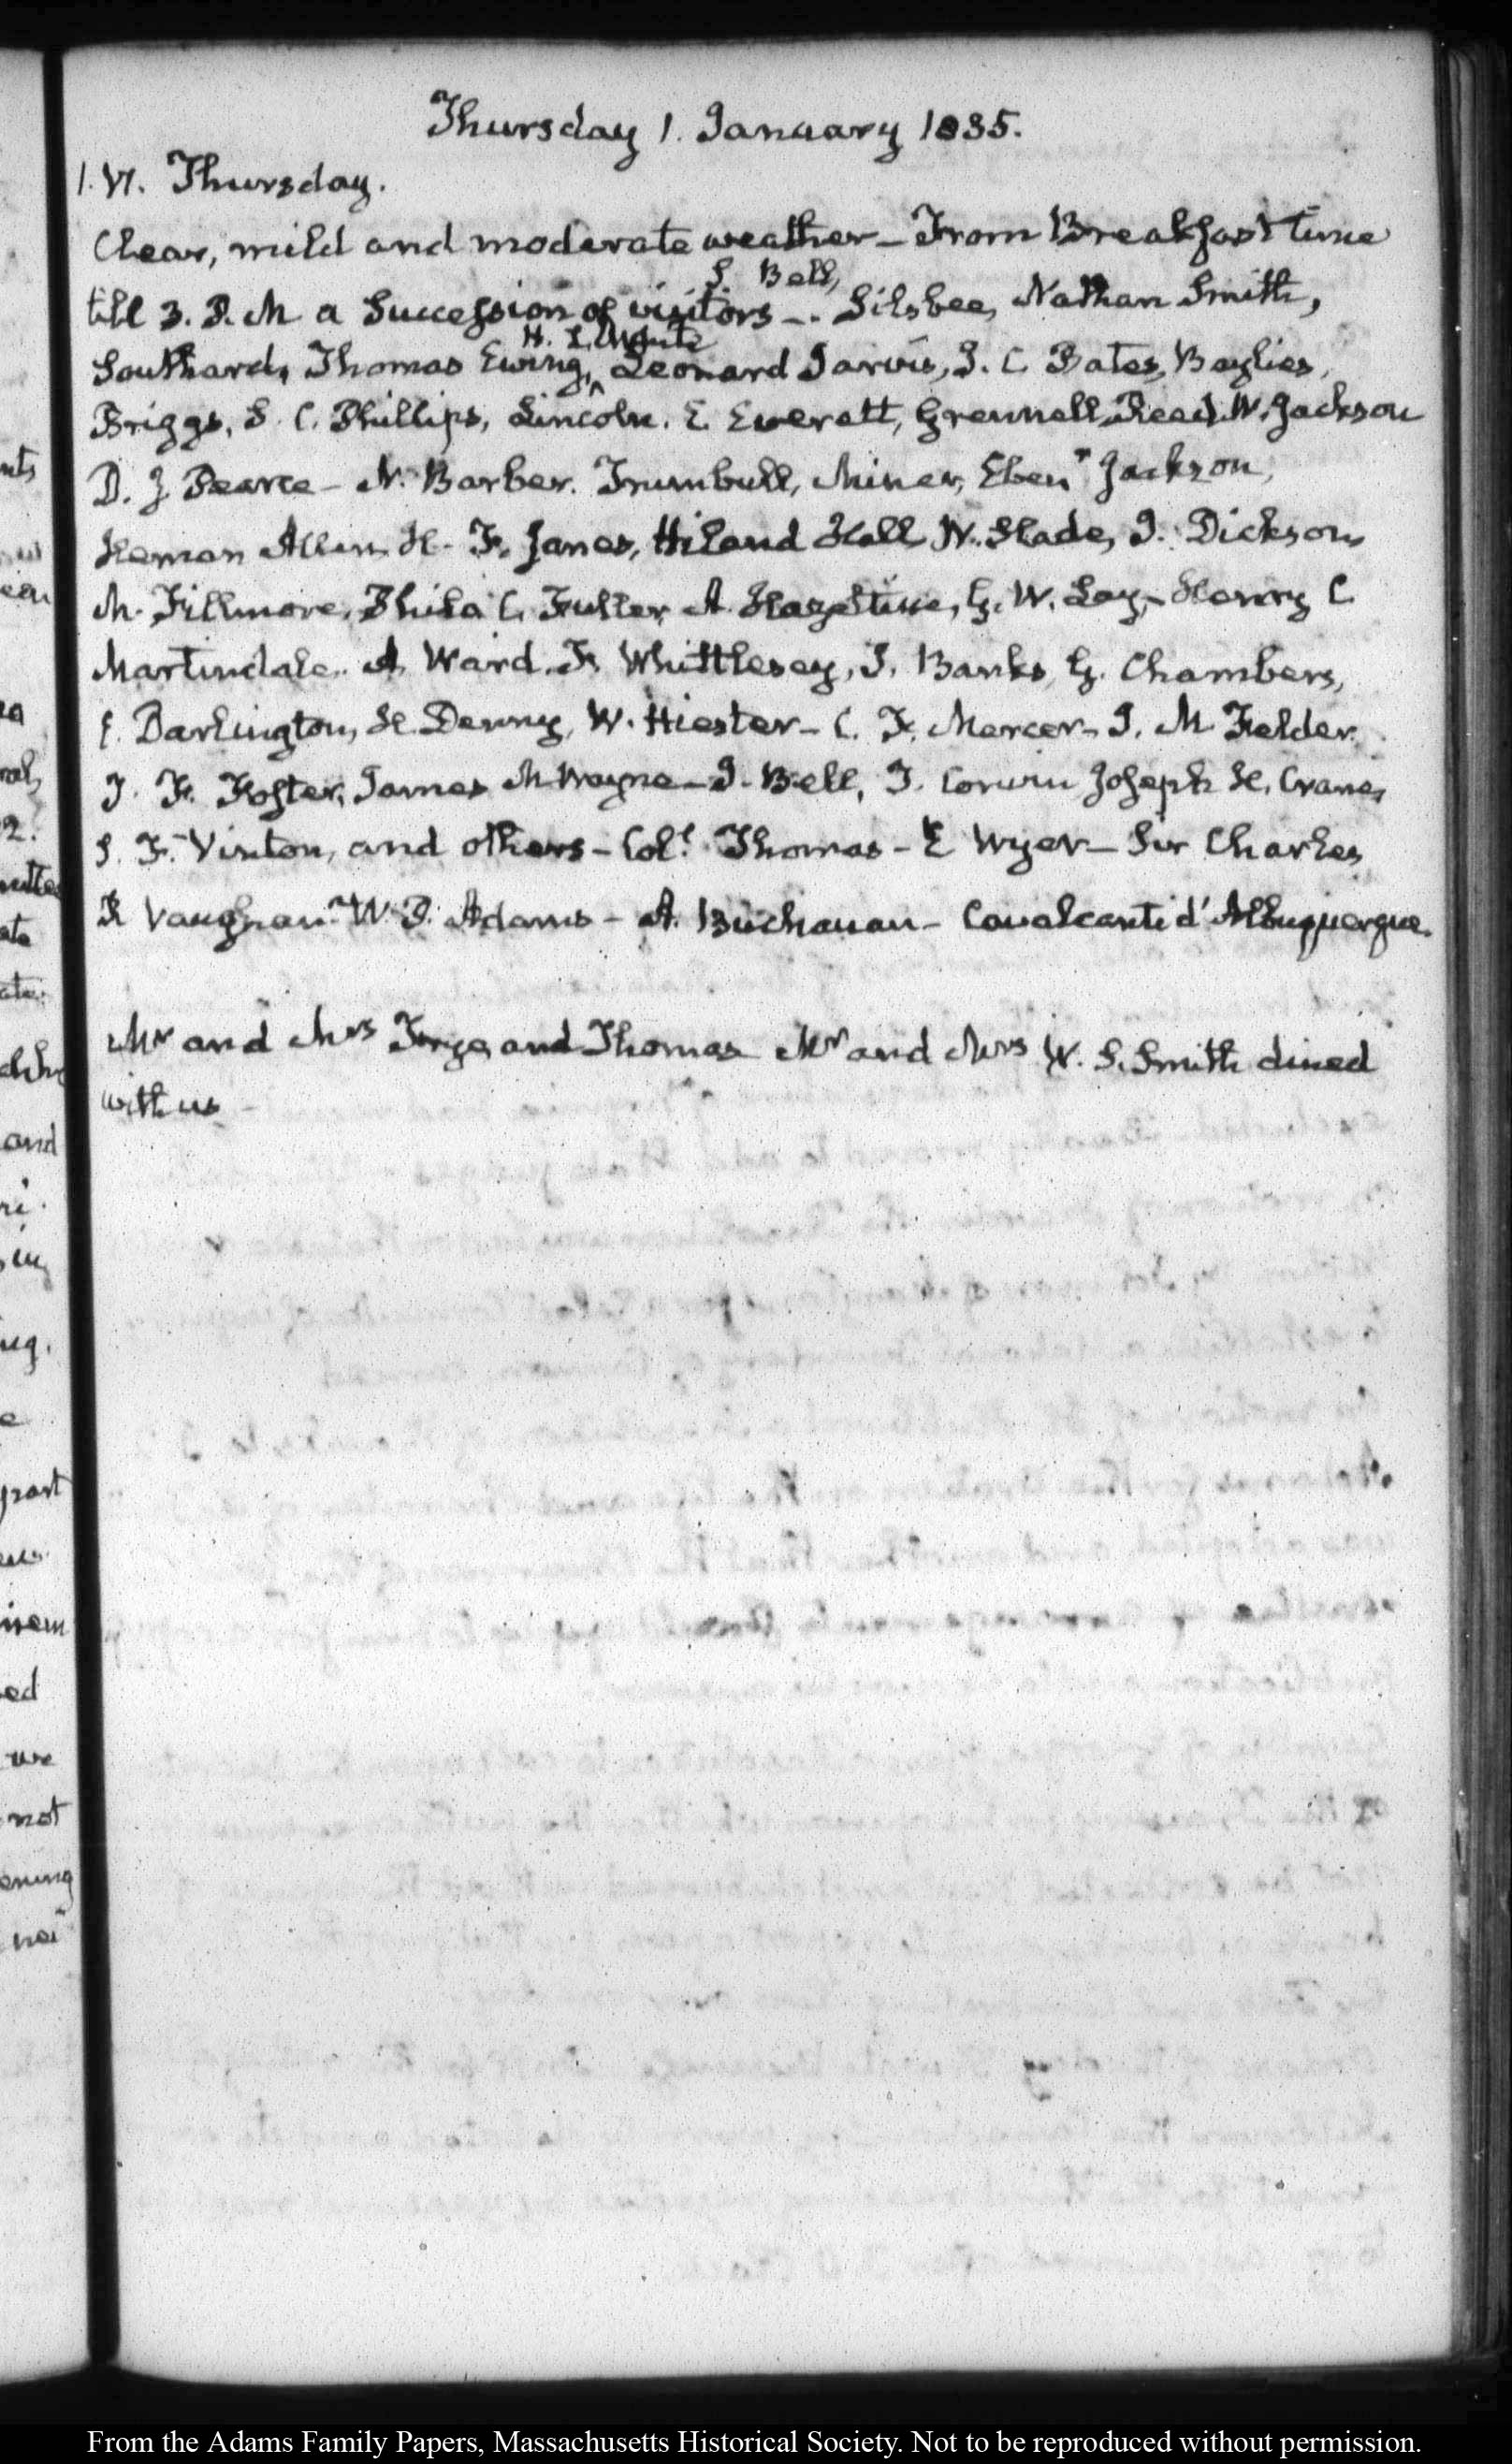 Thursday 1. January 1835.
1. VI. Thursday.
Clear, mild and moderate weather – From Breakfast time
S. Bell,
till 3. P. M a Succession of visitors –. Silsbee, Nathan Smith,
H. L. White
Southard, Thomas Ewing, ^ Leonard Jarvis, I. C. Bates, Baylies,
Briggs, S. C. Phillips, Lincoln. E. Everett, Grennell, Reed, W. Jackson
D. J Pearce – N. Barber. Trumbull, Miner, Eben.r Jackson,
Heman Allen H. F. Janes, Hiland Hall W. Slade, J. Dickson,
M. Fillmore, Philo C. Fuller A. Hazeltine, G. W. Lay, – Henry C
Martindale. A Ward. F. Whittlesey, J. Banks, G. Chambers,
E. Darlington, H. Denny, W. Hiester – C. F. Mercer – J. M Felder.
T. F. Foster, James M Wayne – J. Bell, T. Corwin Joseph H. Crane,
S. F. Vinton, and others – Col.l Thomas – E Wyer – Sir Charles
R Vaughan. W. P. Adams – A. Buchanan – Cavalcanti d'Albuquerque.
Mr and Mrs Frye, and Thomas Mr and Mrs W. S. Smith dined
with us
nts
ral,
2.
ate
and
part
ed
we
not
From the Adams Family Papers, Massachusetts Historical Society. Not to be reproduced without permission.